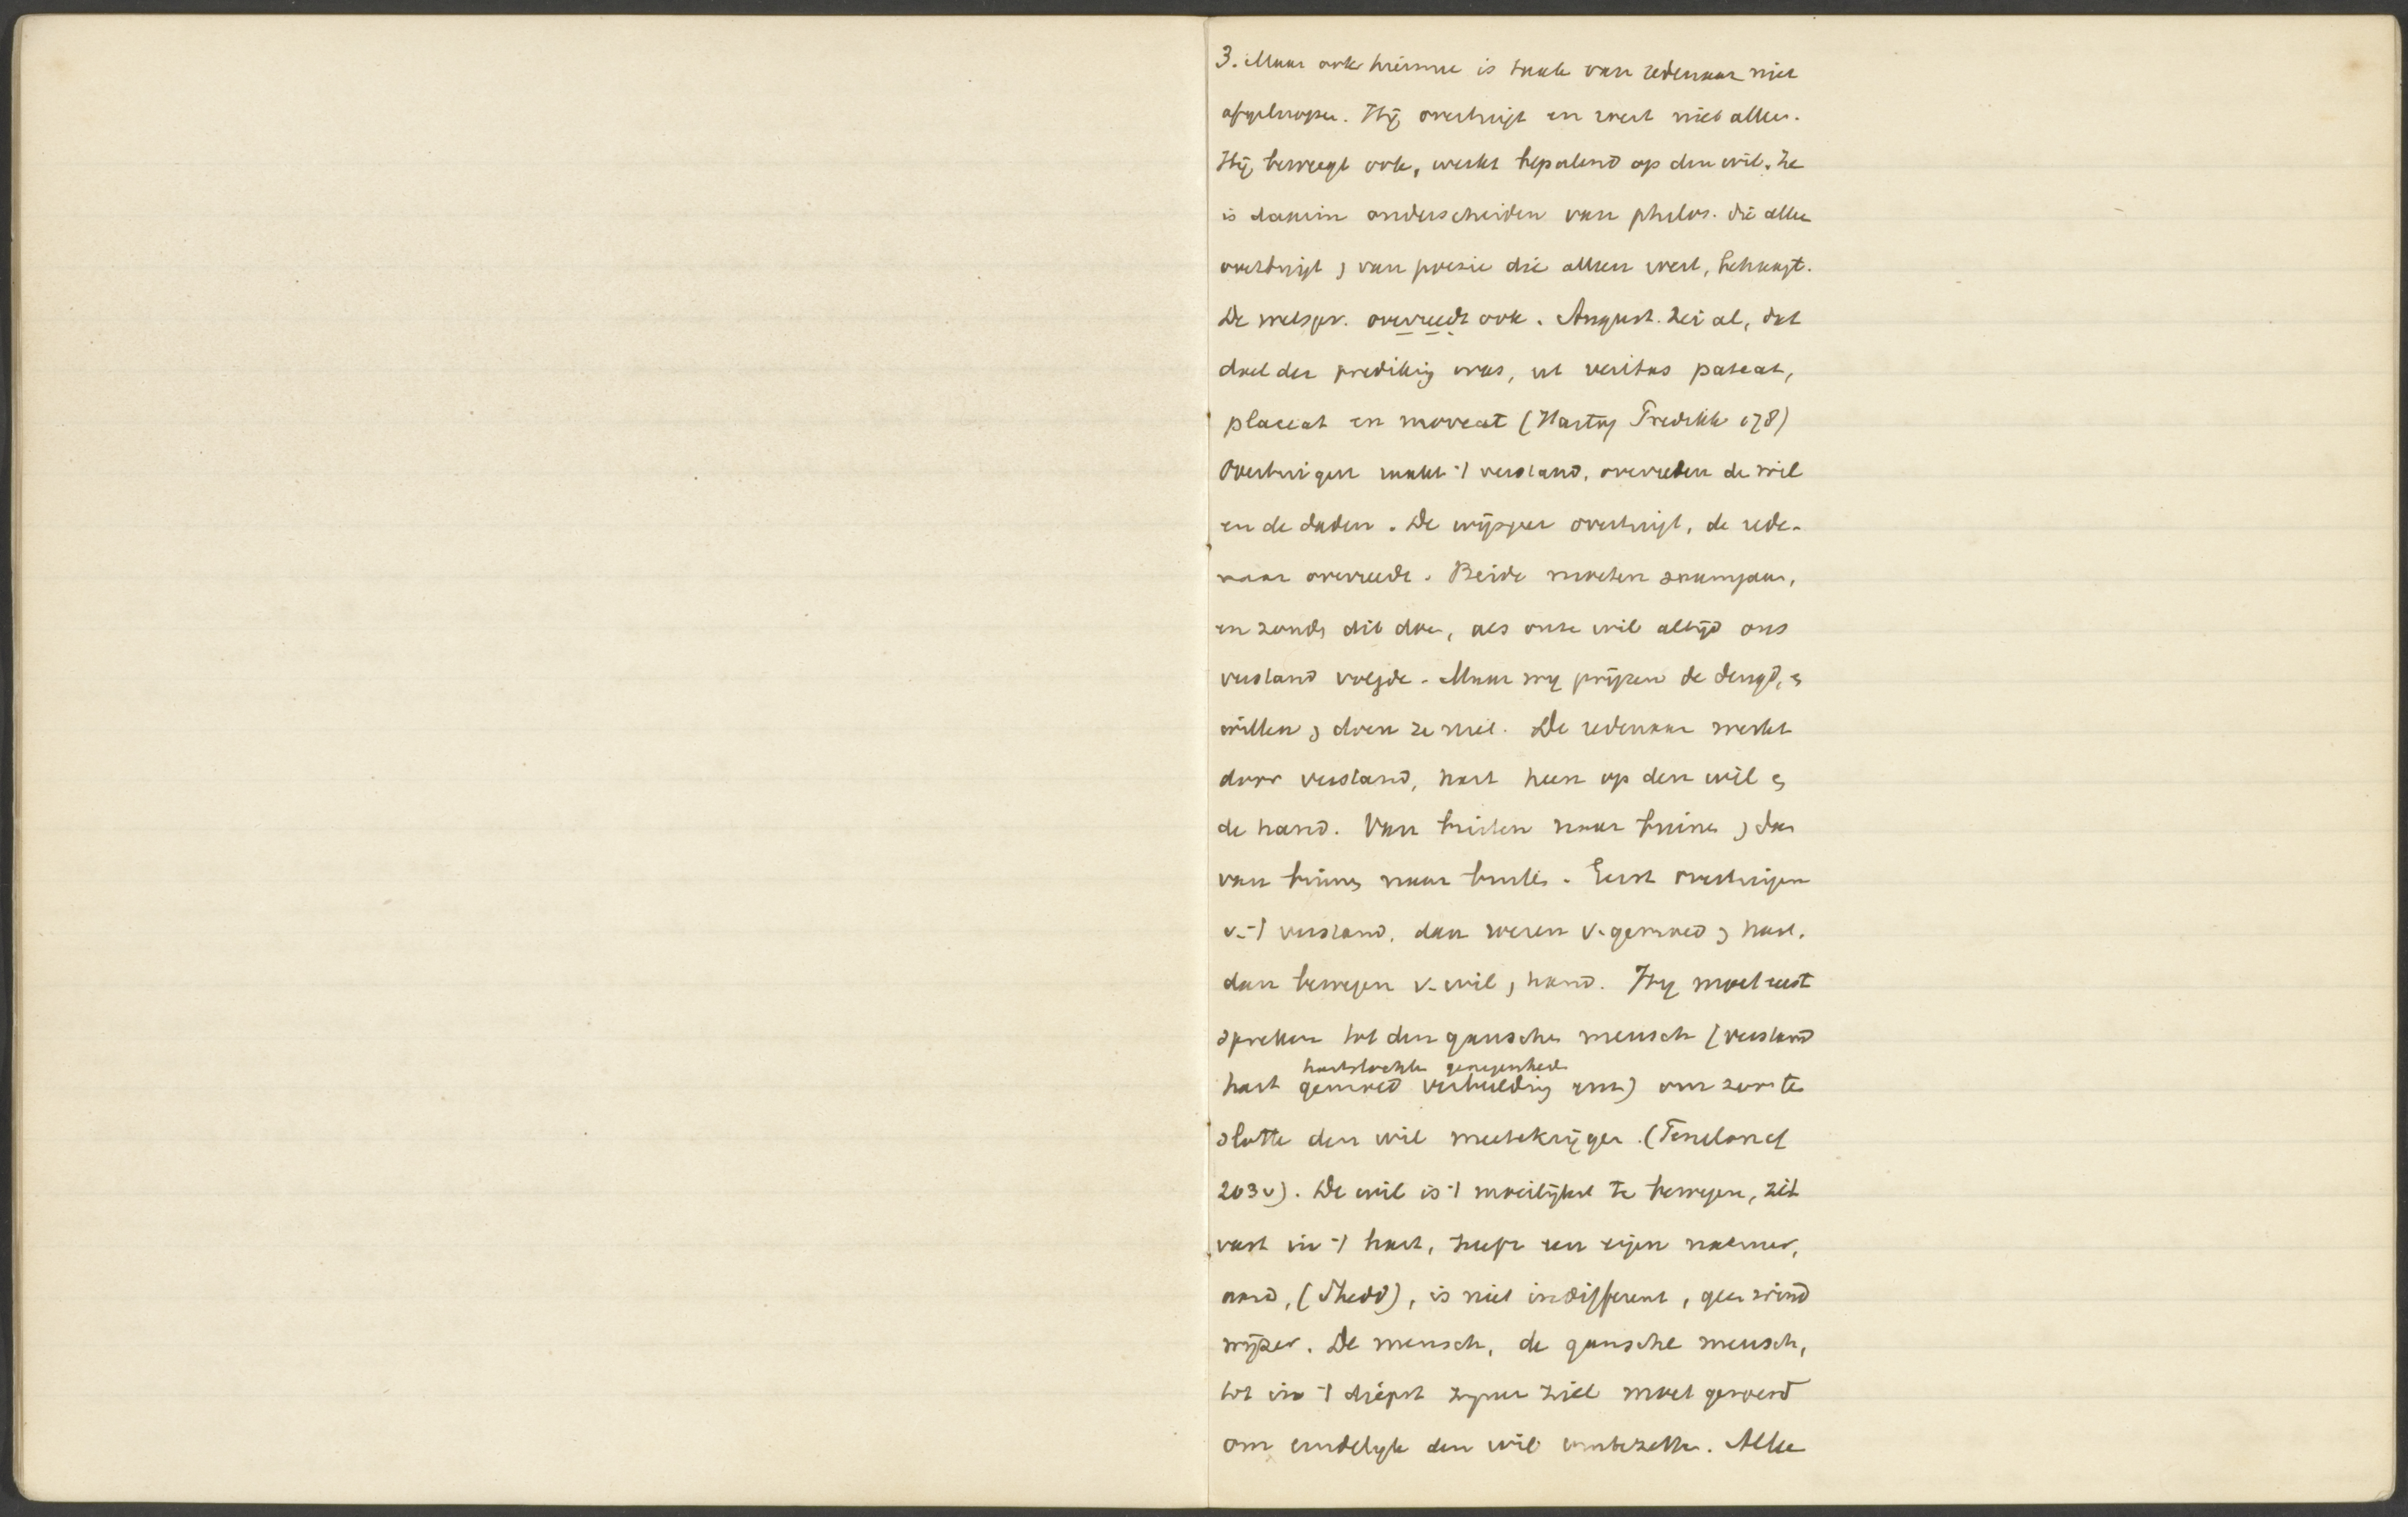 3. Maar ook hiermee is taak van redenaar niet
afgeloopen. Hij overtuigt en roert niet alleen.
Hij beweegt ook, werkt bepalend op den wil. Ze
is daarin onderscheiden van philos. die alleen
overtuigt, van poezie die alleen roert, behaagt.
De welspr. overreedt ook. August. zei al, dat
doel der predikig was, ut veritas pateat,
placeat en moveat (Hartog Predikk 178)
Overtuigen raakt 't verstand, overreden de wil
en de daden. De wijsgeer overtuigt, de rede-
naar overreedt. Beide moeten saamgaan,
en zoude dit doen, als onze wil altijd ons
verstand volgde. Maar wij prijzen de deugd, en
willen, doen ze niet. De redenaar werkt
door verstand, hart heen op den wil en
de hand. Van buiten naar binnen, dan
van binnen naar buiten. Eerst overtuigen
v. 't verstand, dan roeren v. gemoed, hart,
dan bewegen v. wil, hand. Hij moet eerst
spreken tot den ganschen mensch (verstand
hartstochten genegenheden
hart gemoed verbeelding enz) om zoo te
slotte den wil meetekrijgen. (Fenelon cf
203v). De wil is 't moeilijkst te bewegen, zit
vast in 't hart, heeft een eigen natuur,
aard, (Shedd), is niet indifferent, geen wind
wijzer. De mensch, de gansche mensch,
tot in 't diepst zijner ziel moet geroerd
om eindelijk den wil omtezetten. Alle